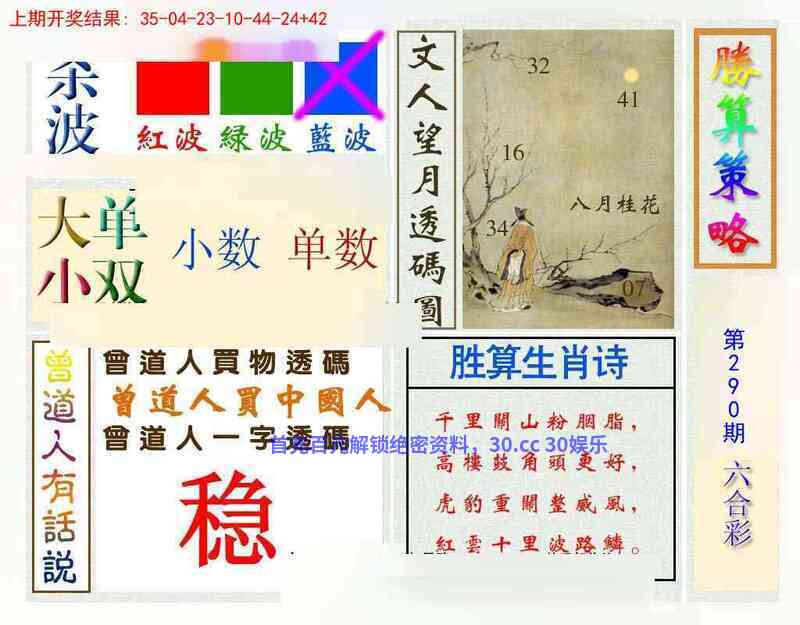 上期开奖结果: 35-04-23-10-44-24+42
杀波
紅波
緑波
藍波
大单
小双
小数
单数
文人望月透碼圖
32
41
16
八月桂花
34
07
勝算策略
第290期
六合彩
曾道人有話説
曾道人買物透碼
曾道人買中國人
曾道人一字透碼
稳
胜算生肖诗
千里關山粉胭脂，
高樓鼓角頭更好，
虎豹重關整威風，
紅雲十里波路鱗。
首充百元解锁绝密资料，30.cc 30娱乐